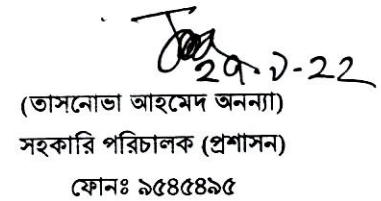 ২৭.৩.২২
(তাসনোভা আহমেদ অনন্যা)
সহকারি পরিচালক (প্রশাসন)
ফোনঃ ৯৫৪৫৪৯৫